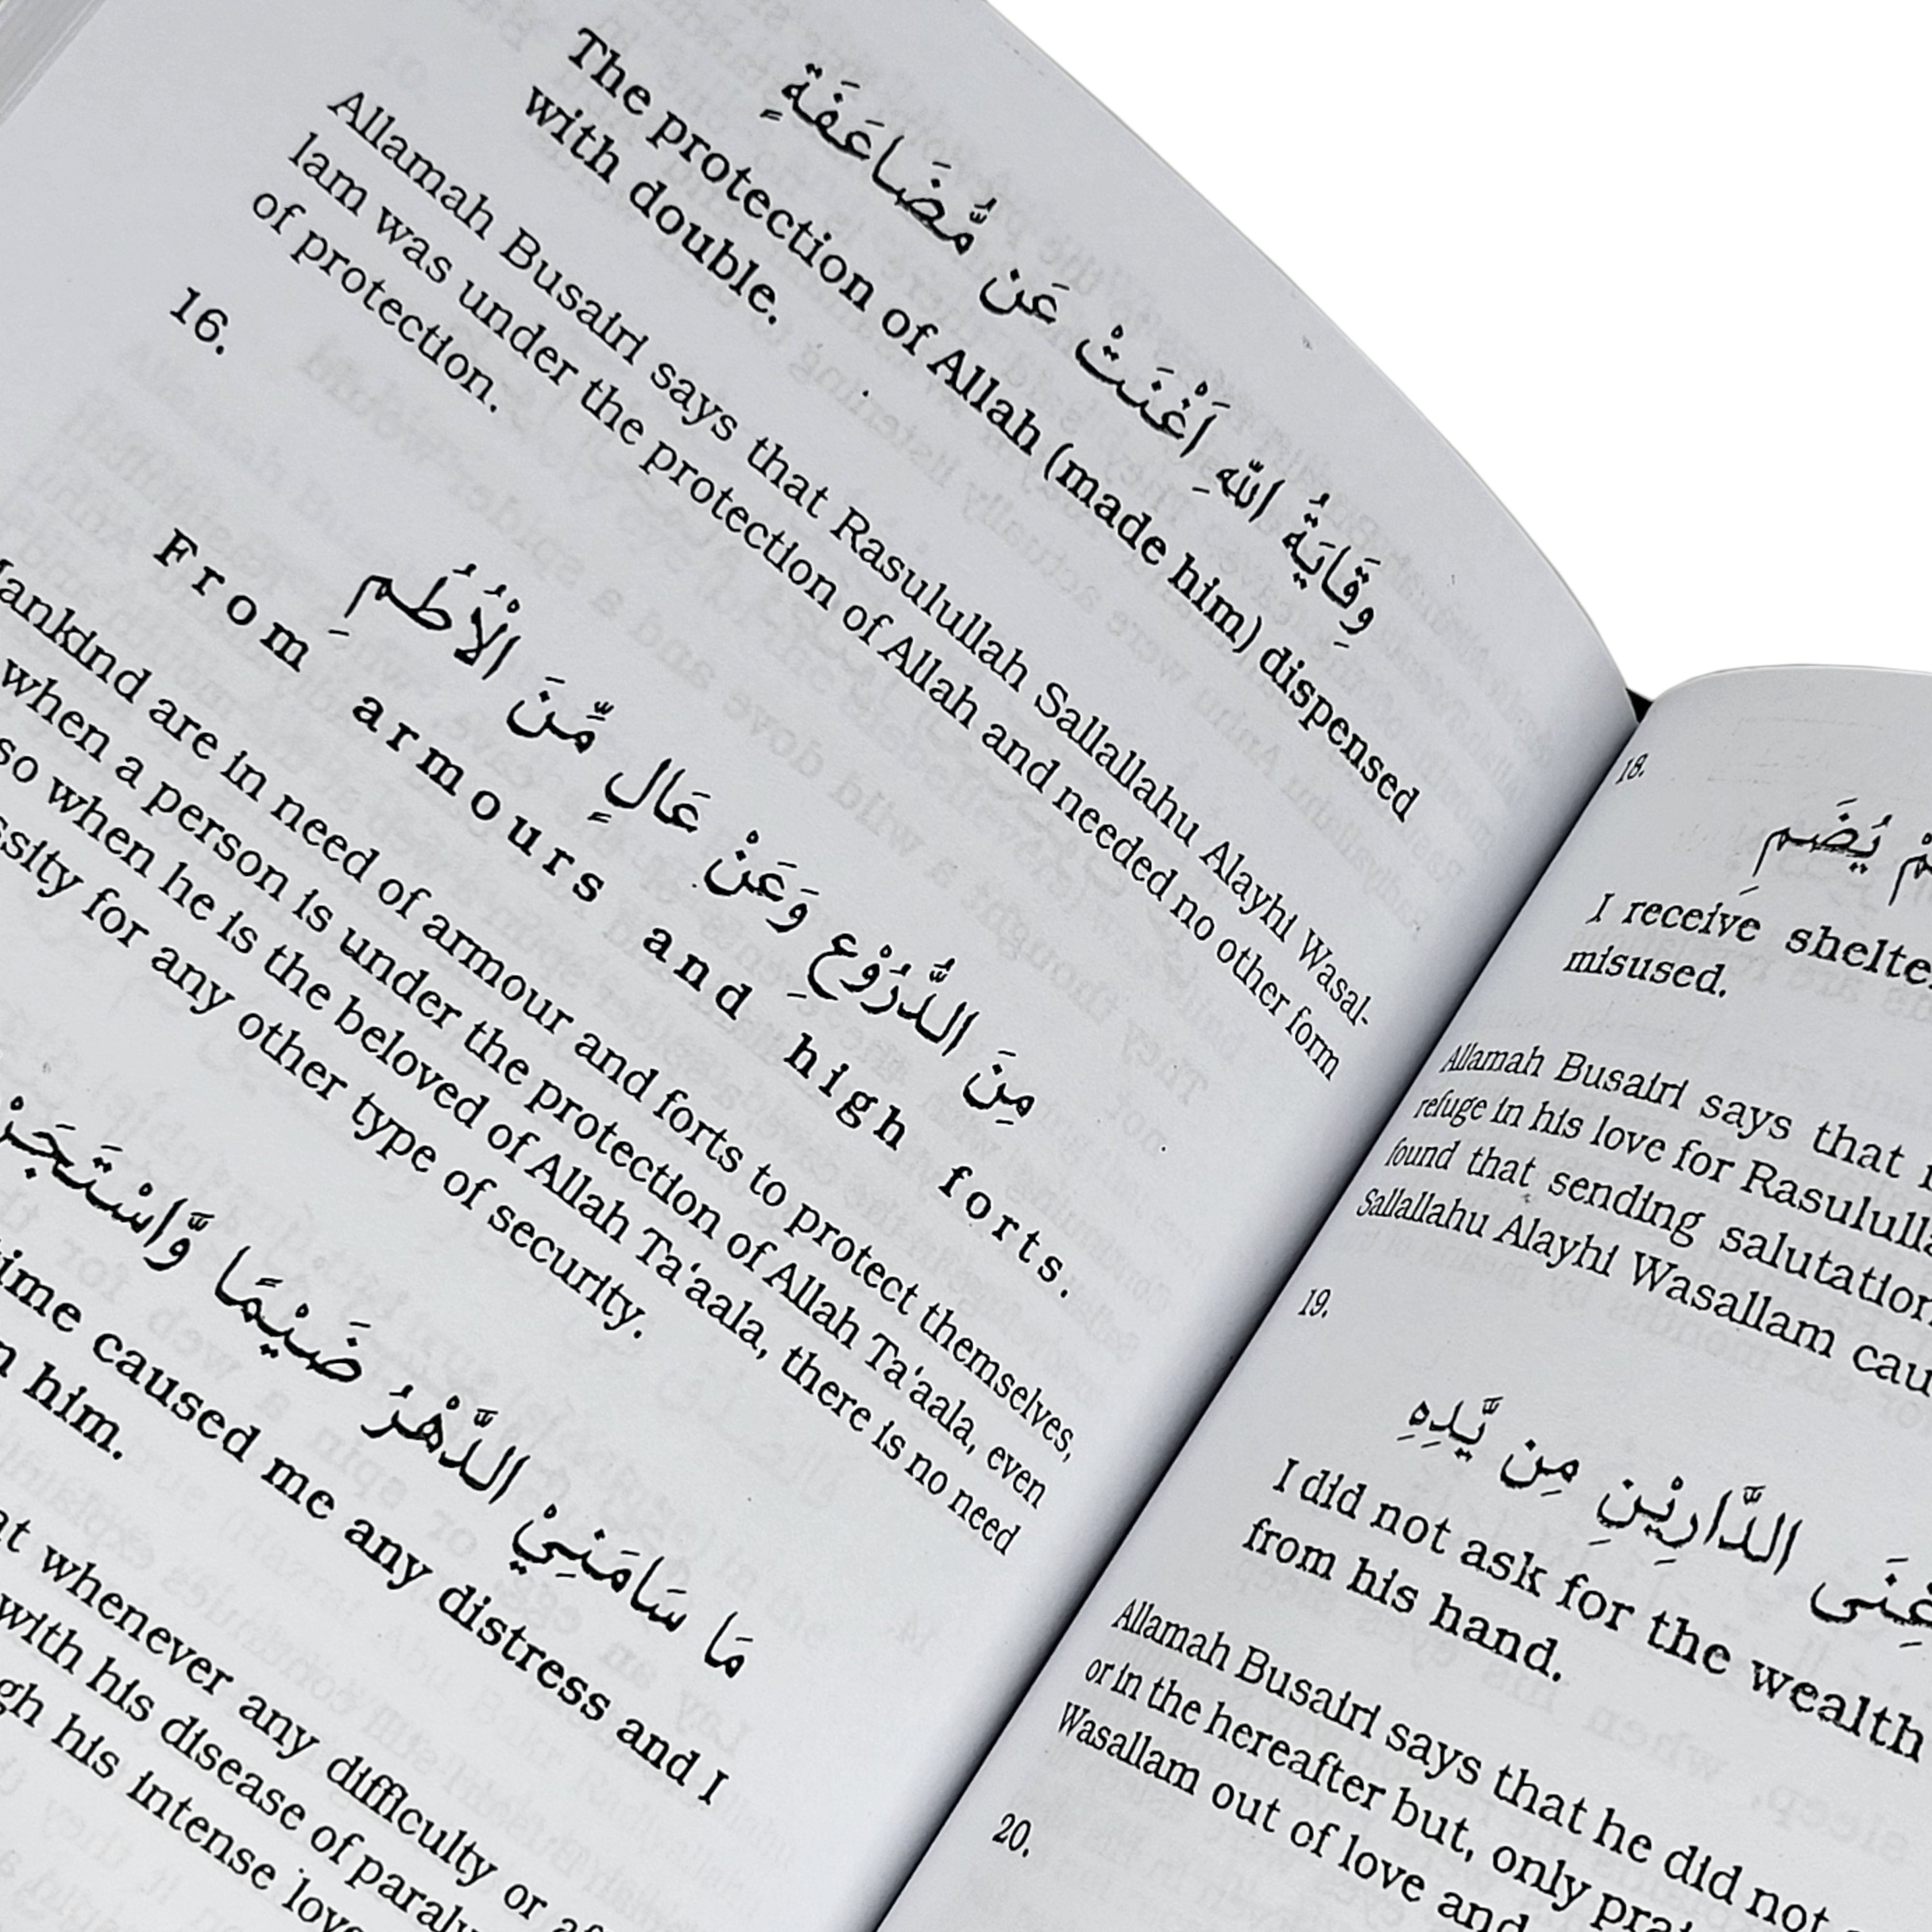 وِقَايَةُ اللّٰهِ اَغْنَتْ عَن مُّضَاعَفَةٍ
The protection of Allah (made him) dispensed
with double.
Allamah Busairi says that Rasulullah Sallallahu Alayhi Wasal-
lam was under the protection of Allah and needed no other form
of protection.
16.
مِنَ الدُّرُوْعِ وَعَنْ عَالٍ مِّنَ الْاُطُمِ
From armours and high forts.
are in need of armour and forts to protect themselves,
when a person is under the protection of Allah Ta'aala, even
so when he is the beloved of Allah Ta'aala, there is no need
for any other type of security.
مَا سَامَنِيْ الدَّهْرُ ضَيْمًا
caused me any distress and I
him.
whenever any difficulty or
with his disease of
his intense
18.
يُضَمِ
I receive
misused.
Allamah Busairi says that
refuge in his love for
found that sending
Sallallahu Alayhi Wasallam
19.
الدَّارَيْنِ مِن يَّدِهِ
I did not ask for the wealth
from his hand.
Allamah Busairi says that he did not
or in the hereafter but, only
Wasallam out of love and
20.